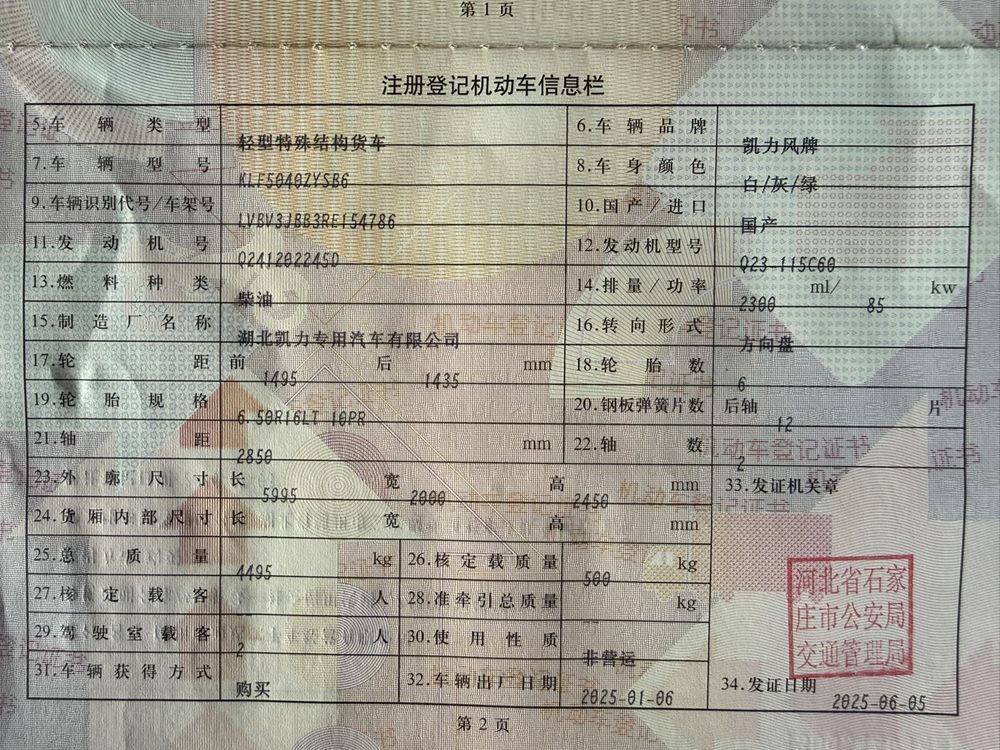 第 1 页
注册登记机动车信息栏
5.车辆类型 轻型特殊结构货车 6.车辆品牌 凯力风牌
7.车辆型号 KLF5040ZYSB6 8.车身颜色 白/灰/绿
9.车辆识别代号/车架号 LVBV3JBB3RE154786 10.国产/进口 国产
11.发动机号 Q241202245D 12.发动机型号 Q23-115C60
13.燃料种类 柴油 14.排量/功率 2300 ml/ 85 kw
15.制造厂名称 湖北凯力专用汽车有限公司 16.转向形式 方向盘
17.轮距 前 1495 后 1435 mm 18.轮胎数 6
19.轮胎规格 6.50R16LT 10PR 20.钢板弹簧片数 后轴 12 片
21.轴距 2850 mm 22.轴数 2
23.外廓尺寸 长 5995 宽 2000 高 2450 mm 33.发证机关章
24.货厢内部尺寸 长 宽 高 mm
25.总质量 4495 kg 26.核定载质量 500 kg
27.核定载客 -- 人 28.准牵引总质量 -- kg
29.驾驶室载客 2 人 30.使用性质 非营运
31.车辆获得方式 购买 32.车辆出厂日期 2025-01-06
河北省石家
庄市公安局
交通管理局
34.发证日期 2025-06-05
第 2 页